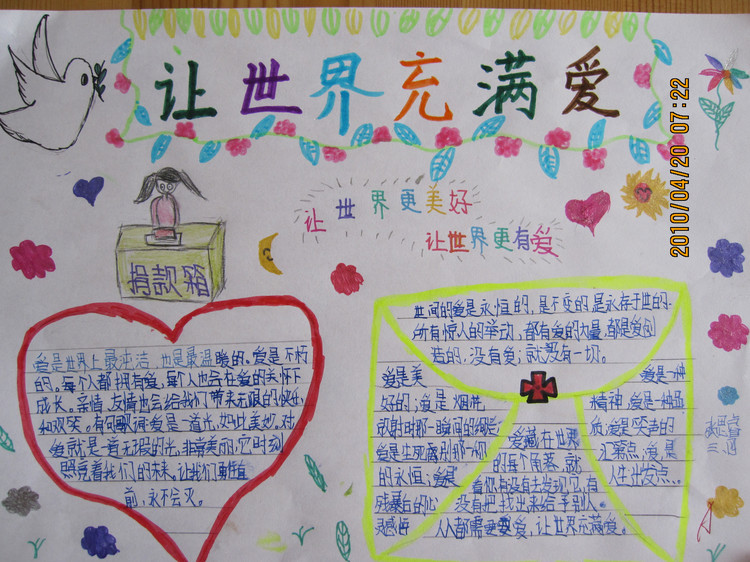 让世界充满爱
2010/04/20 07:22
让世界更美好
让世界更有爱
捐款箱
爱是世界上最纯洁,也是最温暖的。爱是不朽
的。每个人都拥有爱,每个人也会在爱的关怀下
成长。亲情、友情也会给我们带来无限的快乐
和欢笑。有句歌词:爱是一道光,如此美妙。对
爱就是一道无瑕的光,非常美丽,它时刻
照亮着我们的未来,让我们勇往直
前,永不会灭。
世间的爱是永恒的,是不变的,是永存于世的.
所有惊人的举动,都有爱的力量,都是爱创
造的.没有爱;就没有一切。
爱是美
好的;爱是烟花
放射时那一瞬间的绚烂;
爱是生死离别那一刻
的永恒;爱是
残暴后的心
灵感悟
爱藏在世界
的每个角落,就
看你有没有去发现它,有
没有把它找出来给予别人。
人人都需要爱,让世界充满爱。
爱是一种
精神,爱是一种品
质;爱是笑声的
汇聚点;爱是
人生出发点。